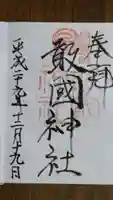 奉拝
敢國神社
平成二十九年十二月十九日